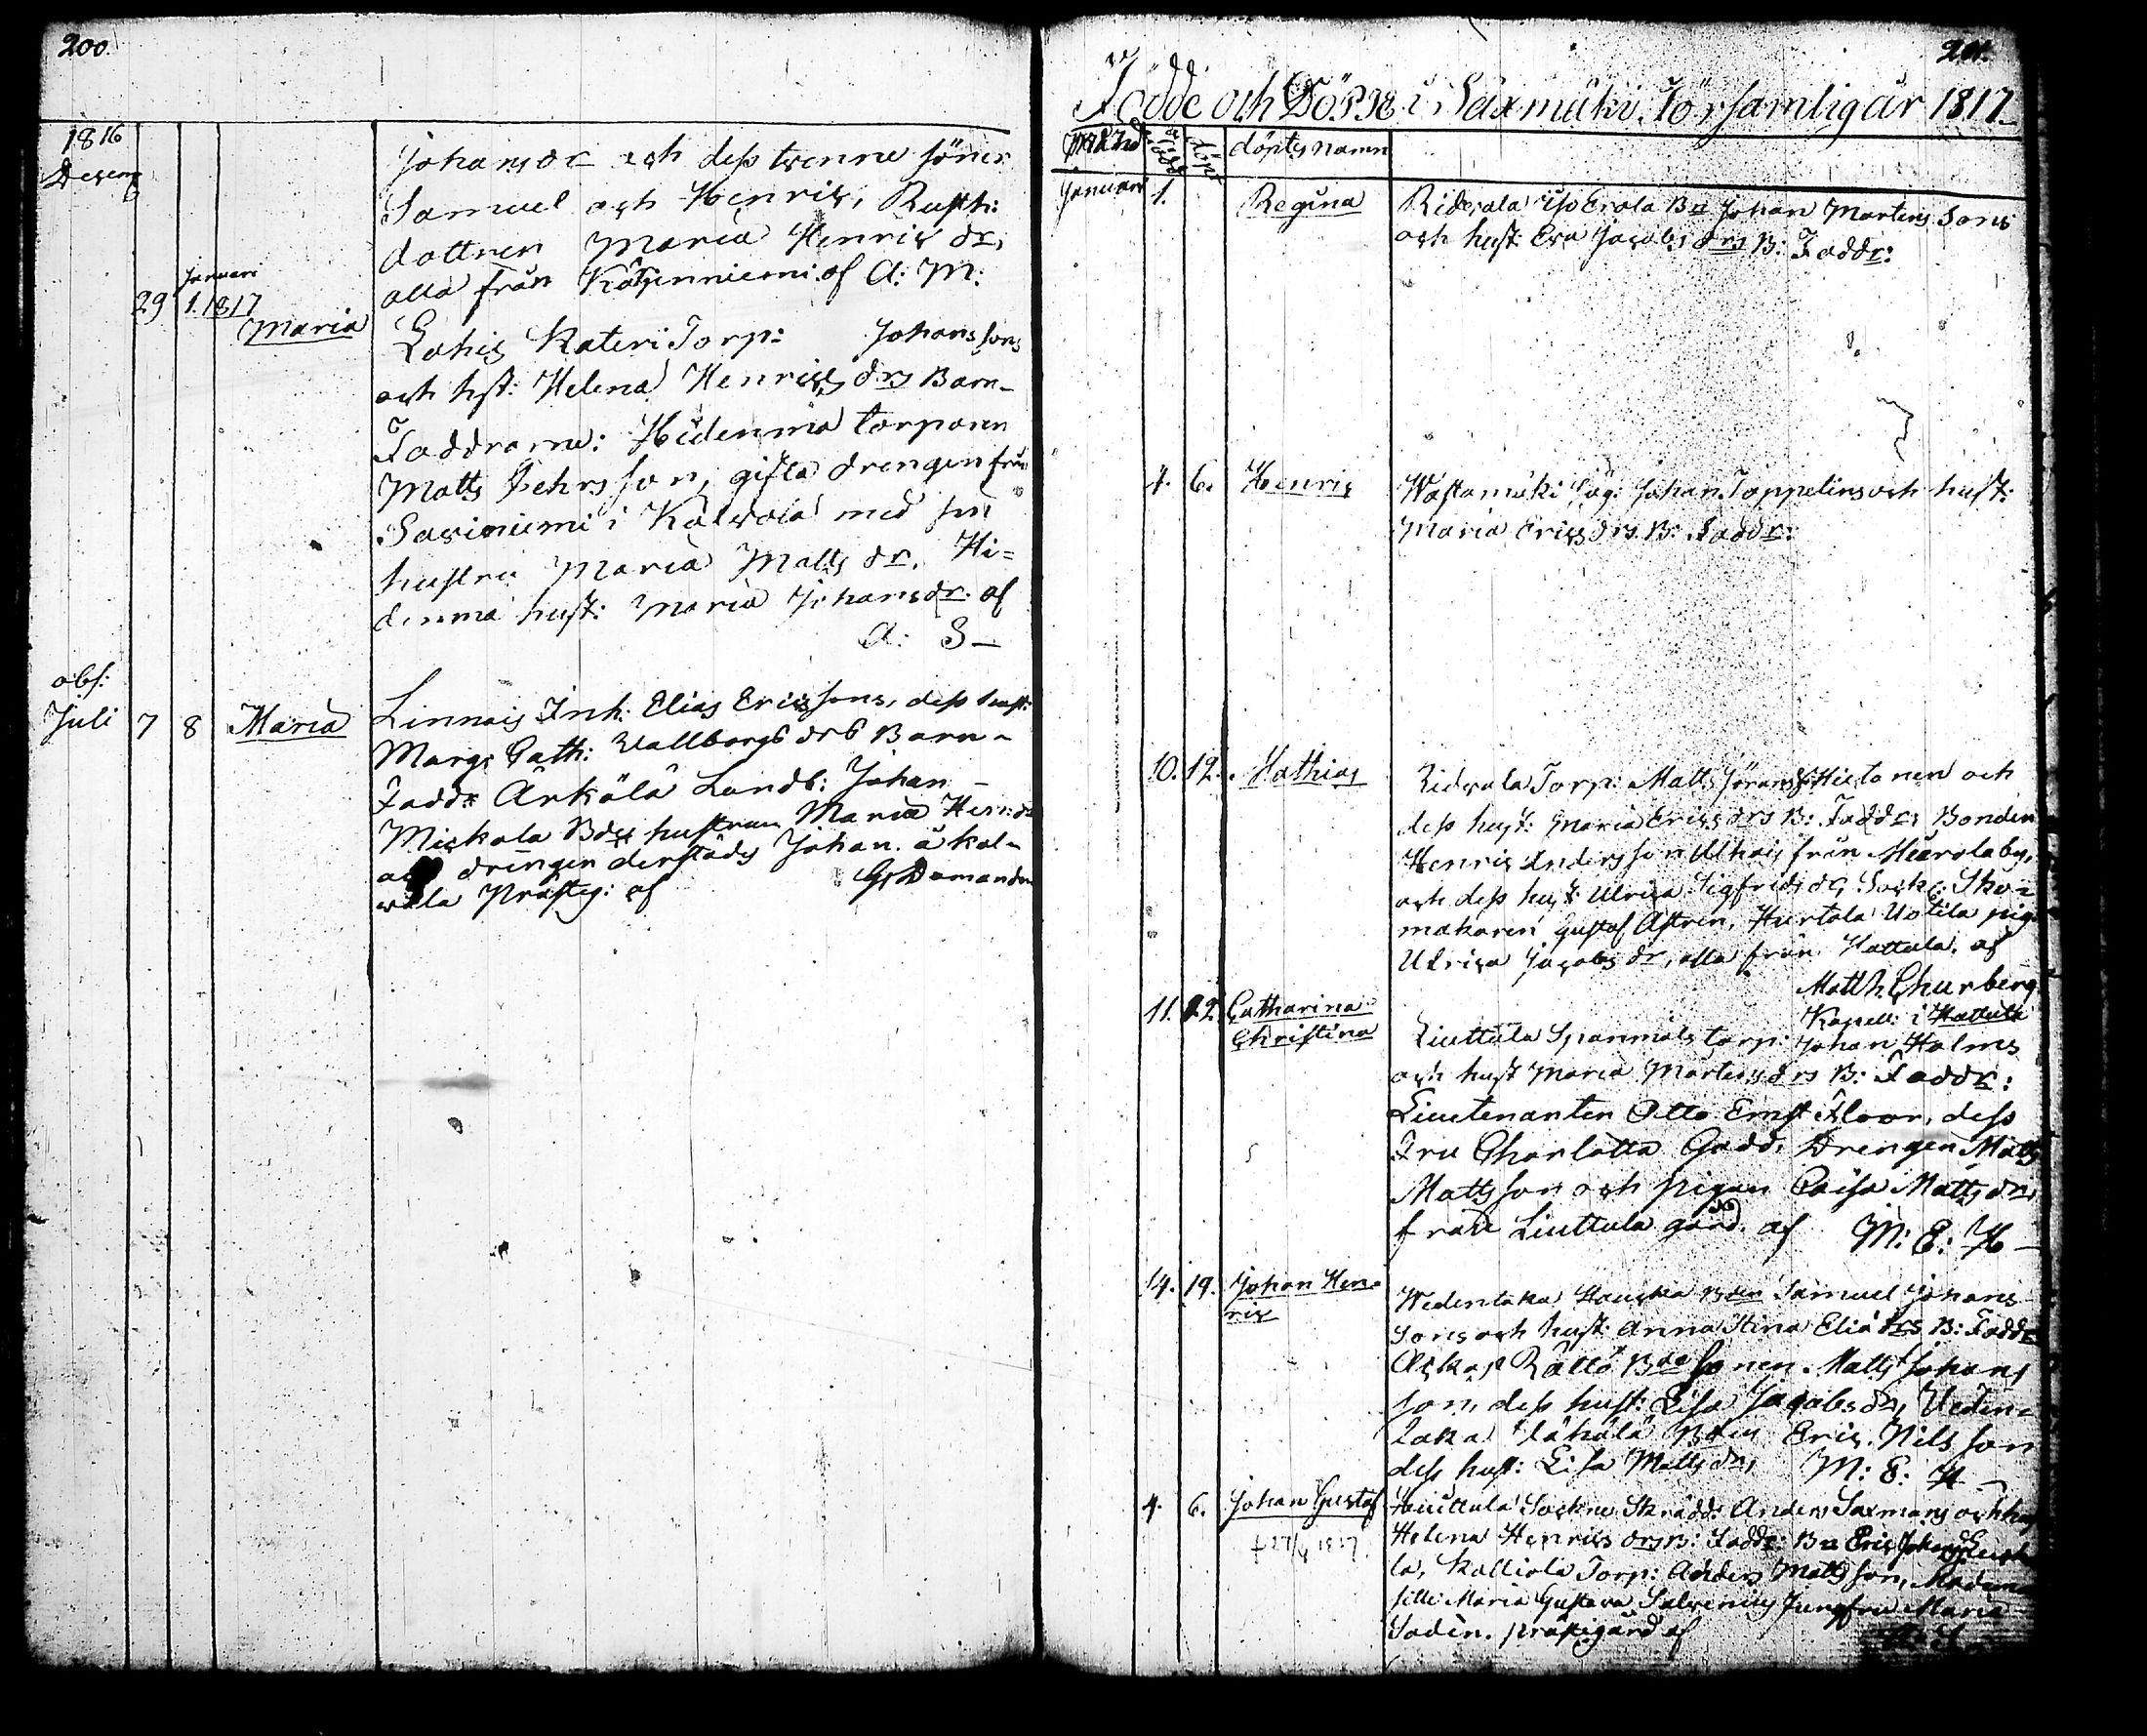 200.
1816
Decemb
Johansdr och dess tvenne söner
Samuel och Henric, Rusth:
dottren Maria Henricsdr,
alla från Kätzenniemi. af A: M:
29 Januari 1. 1817 Maria
Lahis Kateri Torp: Johanssons
och hst: Helena Henricsdrs Barn-
Faddrarne: Hidenmä torparen
Matts Pehrsson, gifta drengen från
Saviniemi i Kalvola med sin
hustru Maria Matts dr. Hi=
denmä hust: Maria Johansdr. af
A: S-
obs:
Juli 7 8 Maria
Linnais Inh: Elias Ericssons, dess hust:
Marg: Cath: Wallborgs drs Barn-
Faddr Arkölä Landb: Johan -
Mickola Bds hustrun Maria Henr: dr
drengen derstädes Johan. å kal-
vola Prästeg: af G: Damandr

201.
Födde och Döpte i Sääxmäki Församling år 1817
Månd född döpt döptes namn
Januari 1. Regina
Ridvala Iso Erola Bn Johan Mårtens Sons
och hust: Eva Jacobs drs B: Faddr:
4. 6. Henric
Wastamäki Inh: Johan Toppelins och hust:
Maria Erics drs B: Faddr:
10. 12. Mathias
Ridvala Torp: Matts Hietanen och
dess hust: Maria Erics drs B: Faddr: Bonden
Henric Andersson Uthais från Mierola by,
och dess hust: Ulrica Sigfrids dr, Sockne Sko=
makaren Gustaf Astren, Hurtala Uotila pig.
Ulrica Jacobs dr, alla från Hattula. af
Matth. Churberg
Kapell: i Hattula
11. 12. Catharina
Christina
Liuttula Spanmåls torp: Johan Holms
och hust Maria Mårtens drs B: Faddr:
Lieutenanten Otto Ernst Floor, dess
Fru Charlotta Gadd, Drengen Matts
Mattsson och pigan Caisa Matts dr,
från Liuttula gård. af M: E: H-
14. 19. Johan Hen=
ric
Wedentaka Hauska Bden Samuel Johans
Sons och hust: Anna Stina Eliædrs B: Faddr
Rättö Bde Sonen Matts Johans
son, dess hust: Lisa Jacobsdr, Veden=
taka Bden Eric Nilsson
dess hust: Lisa Mattsdr, M: E: H-
4. 6. Johan Gustaf
† 27/4 1817.
Huittula Sockne Skrädd: Anders Saxmans och hust
Helena Henrics drs B: Faddr: Bn Eric Johans
la, Kalliola Torp: Anders Mattsson, Madem=
selle Maria Gustava Salvenius Jungfru Maria
Sadén. prästgård af